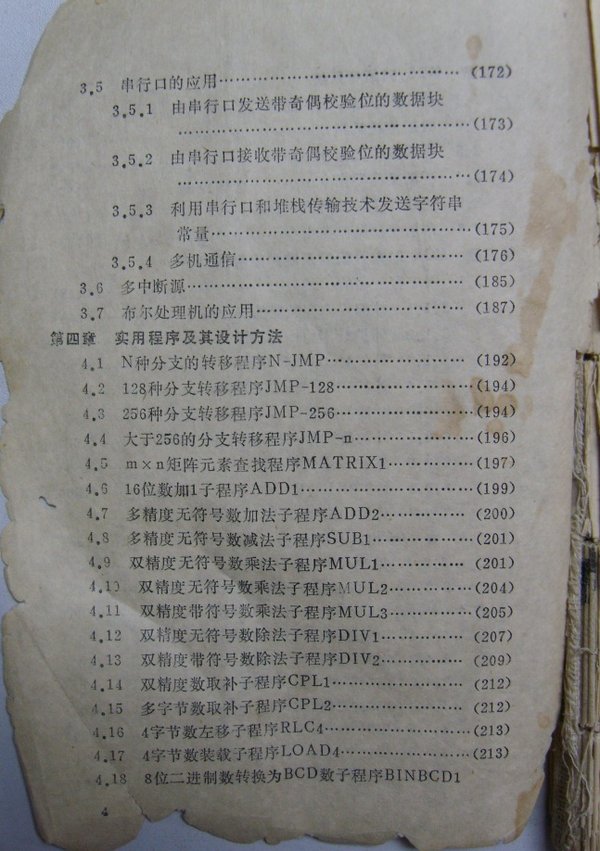 3.5 串行口的应用…………………………………(172)
3.5.1 由串行口发送带奇偶校验位的数据块
…………………………………………(173)
3.5.2 由串行口接收带奇偶校验位的数据块
…………………………………………(174)
3.5.3 利用串行口和堆栈传输技术发送字符串
常量…………………………………(175)
3.5.4 多机通信……………………………(176)
3.6 多中断源……………………………………(185)
3.7 布尔处理机的应用…………………………(187)
第四章 实用程序及其设计方法
4.1 N种分支的转移程序N-JMP………………(192)
4.2 128种分支转移程序JMP-128………………(194)
4.3 256种分支转移程序JMP-256………………(194)
4.4 大于256的分支转移程序JMP-n……………(196)
4.5 m×n矩阵元素查找程序MATRIX1…………(197)
4.6 16位数加1子程序ADD1……………………(199)
4.7 多精度无符号数加法子程序ADD2…………(200)
4.8 多精度无符号数减法子程序SUB1…………(201)
4.9 双精度无符号数乘法子程序MUL1…………(201)
4.10 双精度无符号数乘法子程序MUL2…………(204)
4.11 双精度带符号数乘法子程序MUL3…………(205)
4.12 双精度无符号数除法子程序DIV1…………(207)
4.13 双精度带符号数除法子程序DIV2…………(209)
4.14 双精度数取补子程序CPL1…………………(212)
4.15 多字节数取补子程序CPL2…………………(212)
4.16 4字节数左移子程序RLC4…………………(213)
4.17 4字节数装载子程序LOAD4………………(213)
4.18 8位二进制数转换为BCD数子程序BINBCD1
4